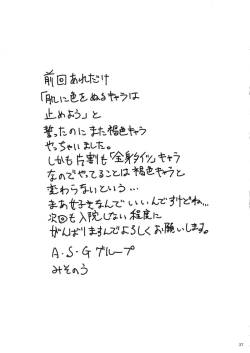 前回あれだけ
「肌に色をぬるキャラは
止めよう」と
誓ったのにまた褐色キャラ
やっちゃいました。
しかも片割も「全身タイツ」キャラ
なのでやってることは褐色キャラと
変わらないという…
まあ好きなんでいいんですけどね…
次回も入院しない程度に
がんばりますんでよろしくお願いします。
A・S・Gグループ
みそのう
37